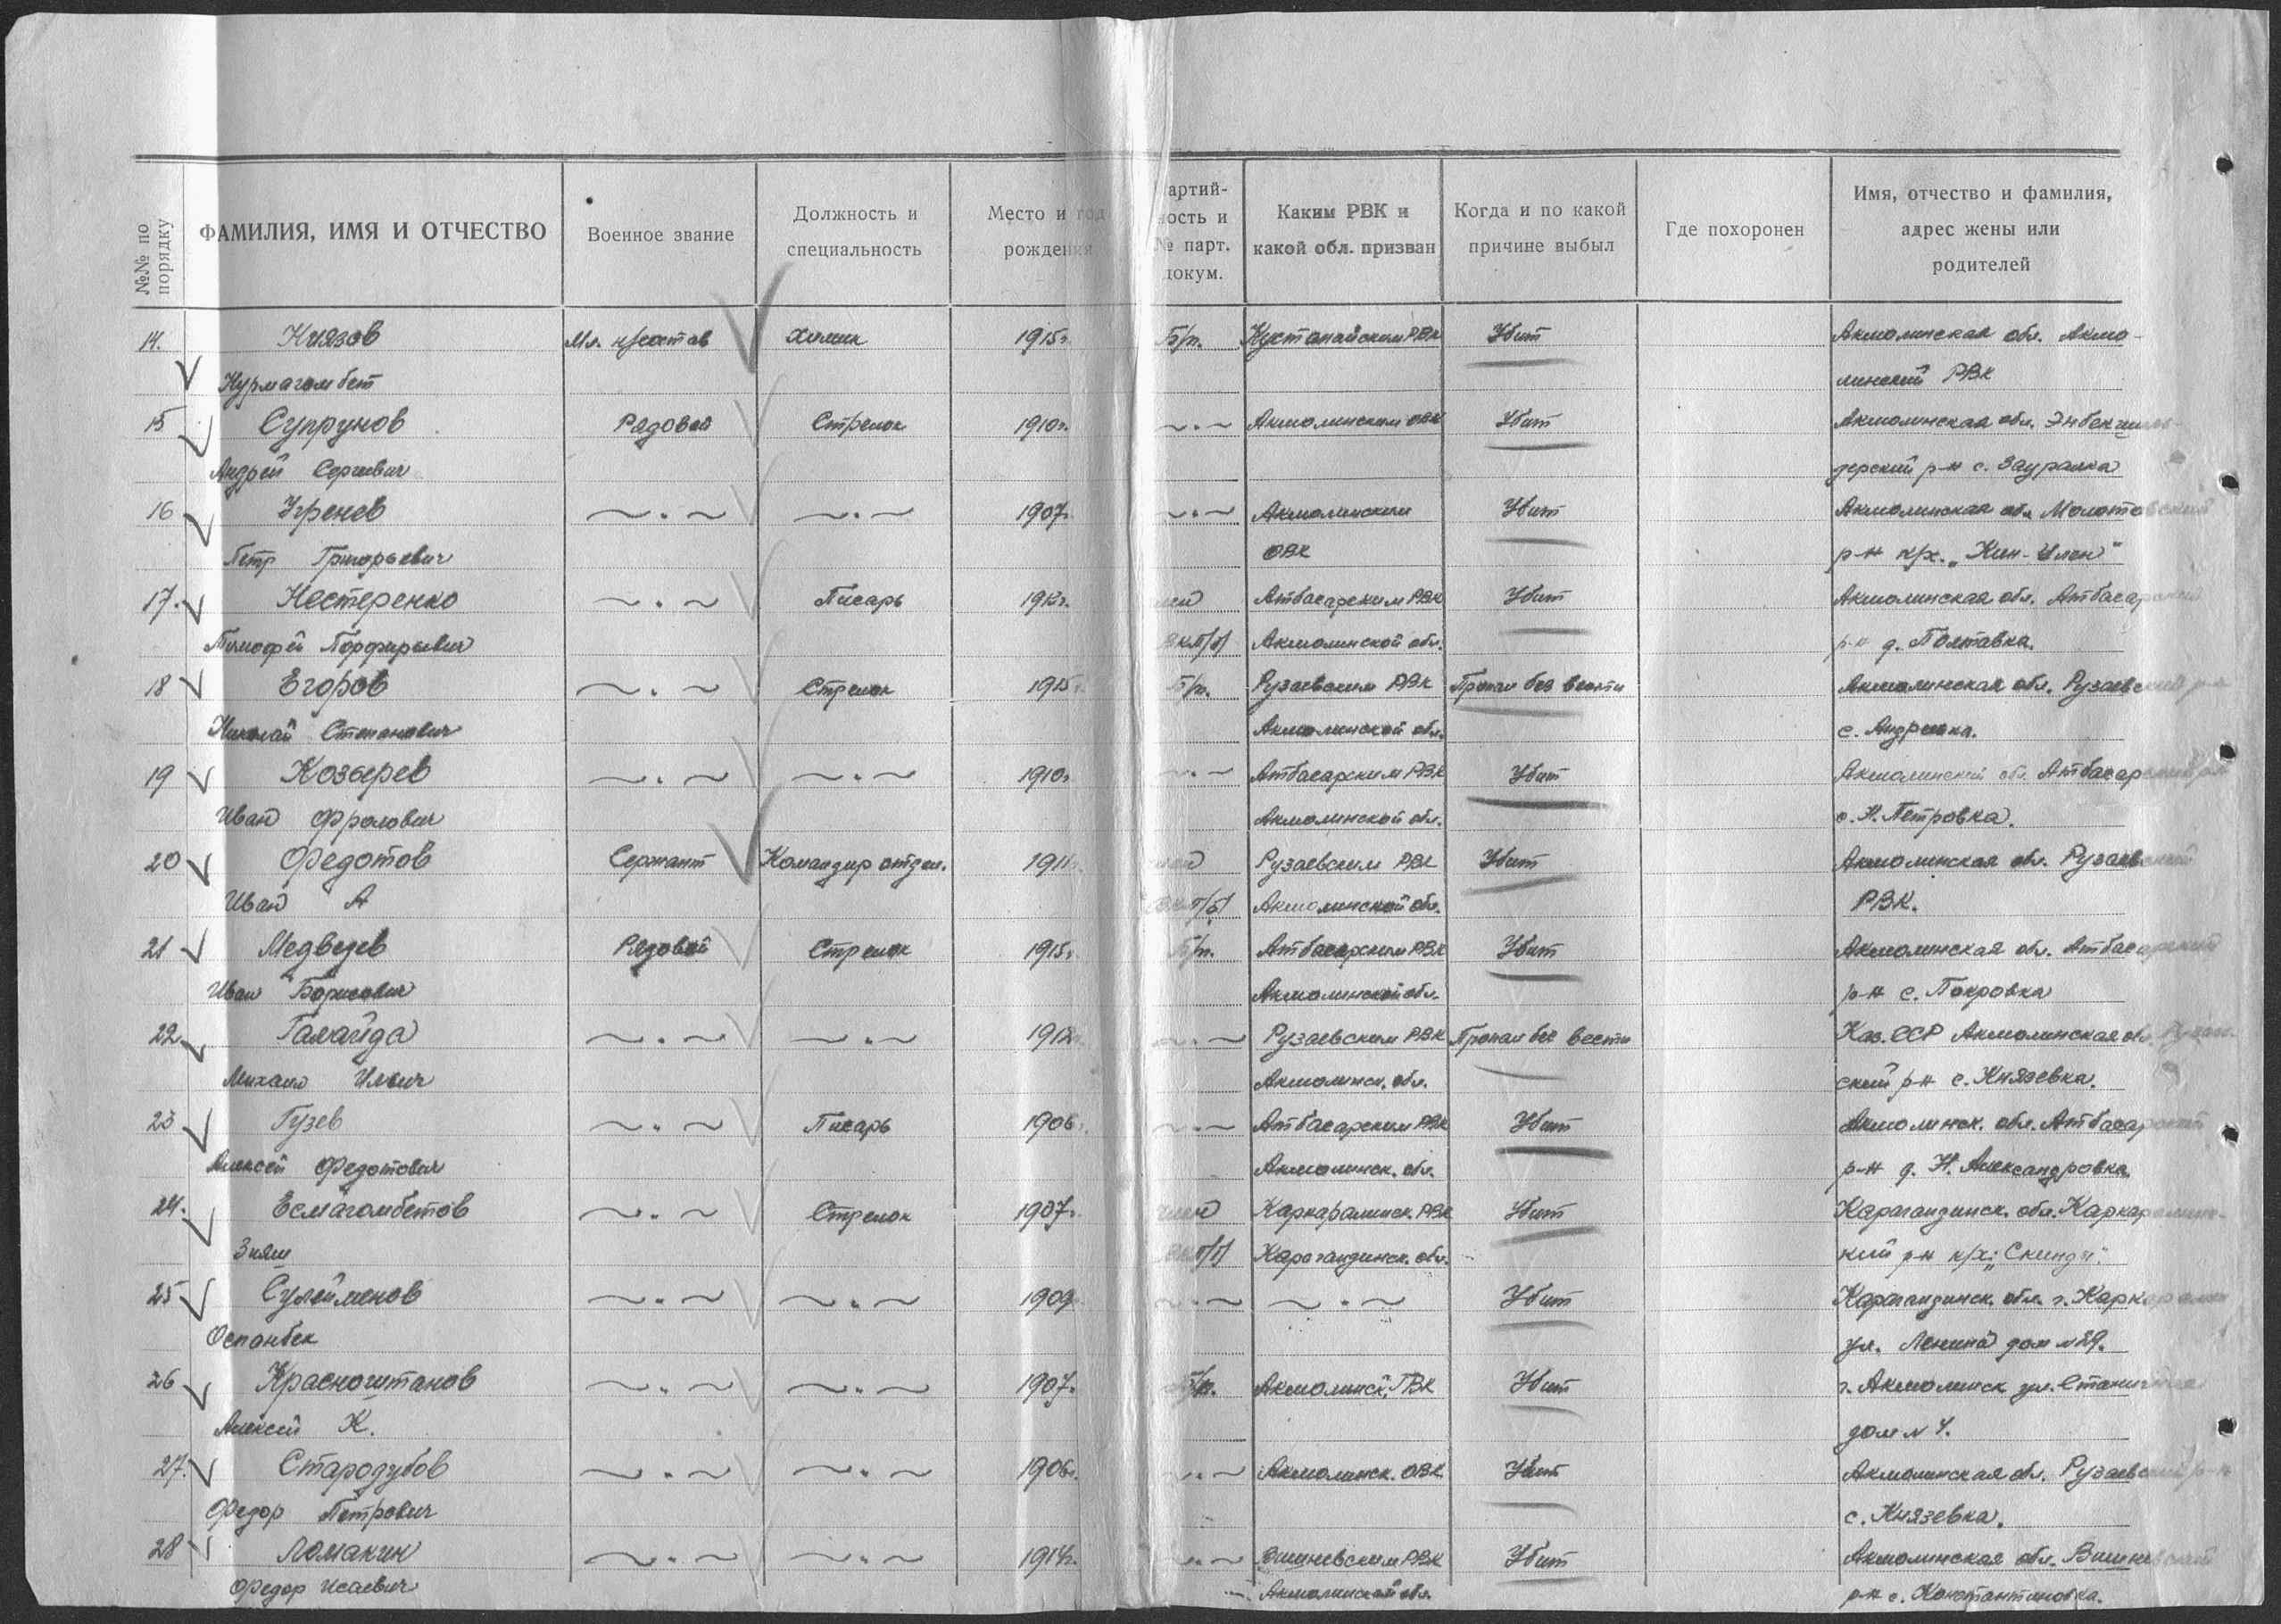 №№ по порядку
ФАМИЛИЯ, ИМЯ И ОТЧЕСТВО
Военное звание
Должность и специальность
Место и год рождения
артий-
ность и
№ парт.
докум.
Каким РВК и какой обл. призван
Когда и по какой причине выбыл
Где похоронен
Имя, отчество и фамилия, адрес жены или родителей
14. Ниязов Мл. н/состав Химик 1915г. Б/п. Кустанайским РВК Убит Акмолинская обл. Акмо-
Нурмагомбет линский РВК
15 Супрунов Рядовой Стрелок 1910г. ~.~ Акмолинским ОВК Убит Акмолинская обл. Энбекшиль-
Андрей Сергеевич дерский р-н с. Зауралка
16 Угренев ~.~ ~.~ 1907г. ~.~ Акмолинским Убит Акмолинская обл. Молотовский
Петр Григорьевич ОВК р-н к/х.
17. Нестеренко ~.~ Писарь Атбасарским РВК Убит Акмолинская обл. Атбасарский
Тимофей Порфирьевич ВКП/б/ Акмолинской обл. р-н д. Полтавка.
18 Егоров ~.~ Стрелок 1915 Б/п. Рузаевским РВК Пропал без вести Акмолинская обл. Рузаевский р-н
Николай Степанович Акмолинской обл. с. Андреевка.
19 Козырев ~.~ ~.~ 1910г. ~.~ Атбасарским РВК Убит Акмолинский обл. Атбасарский р-н
Иван Фролович Акмолинской обл. с. Н. Петровка.
20 Федотов Сержант Командир отдел. Рузаевским РВК Убит Акмолинская обл. Рузаевский
Иван А ВКП/б/ Акмолинской обл. РВК.
21 Медведев Рядовой Стрелок 1915г. Б/п. Атбасарским РВК Убит Акмолинская обл. Атбасарский
Иван Борисович Акмолинской обл. р-н с. Покровка
22 Галайда ~.~ ~.~ 1912 ~.~ Рузаевским РВК Пропал без вести Каз. ССР Акмолинская обл. Рузаев-
Михаил Ильич Акмолинск. обл. ский р-н с. Князевка.
23 Гузев ~.~ Писарь 1906 ~.~ Атбасарским РВК Убит Акмолинск. обл. Атбасарский
Алексей Федотович Акмолинск. обл. р-н д. Н. Александровка.
24. Есмагомбетов ~.~ Стрелок 1907г. член Каркаралинск. РВК Убит Карагандинск. обл. Каркаралинс-
Зиям ВКП/б/ Карагандинск. обл. кий р-н к/х:
25 Сулейменов ~.~ ~.~ 1909 ~.~ ~.~ Убит Карагандинск. обл. г. Каркаралин
Оспанбек ул. Ленина дом № 29.
26 Красноштанов ~.~ ~.~ 1907г. Б/п. Акмолинск. ГВК Убит г. Акмолинск ул. Станичная
Алексей К. дом № 4.
27. Стародубов ~.~ ~.~ 1906г. ~.~ Акмолинск. ОВК Убит Акмолинская обл. Рузаевский р-н
Федор Петрович с. Князевка.
28 Ломакин ~.~ ~.~ 1914г. ~.~ Вишневским РВК Убит Акмолинская обл. Вишневский
Федор Исаевич Акмолинской обл. р-н с. Константиновка.